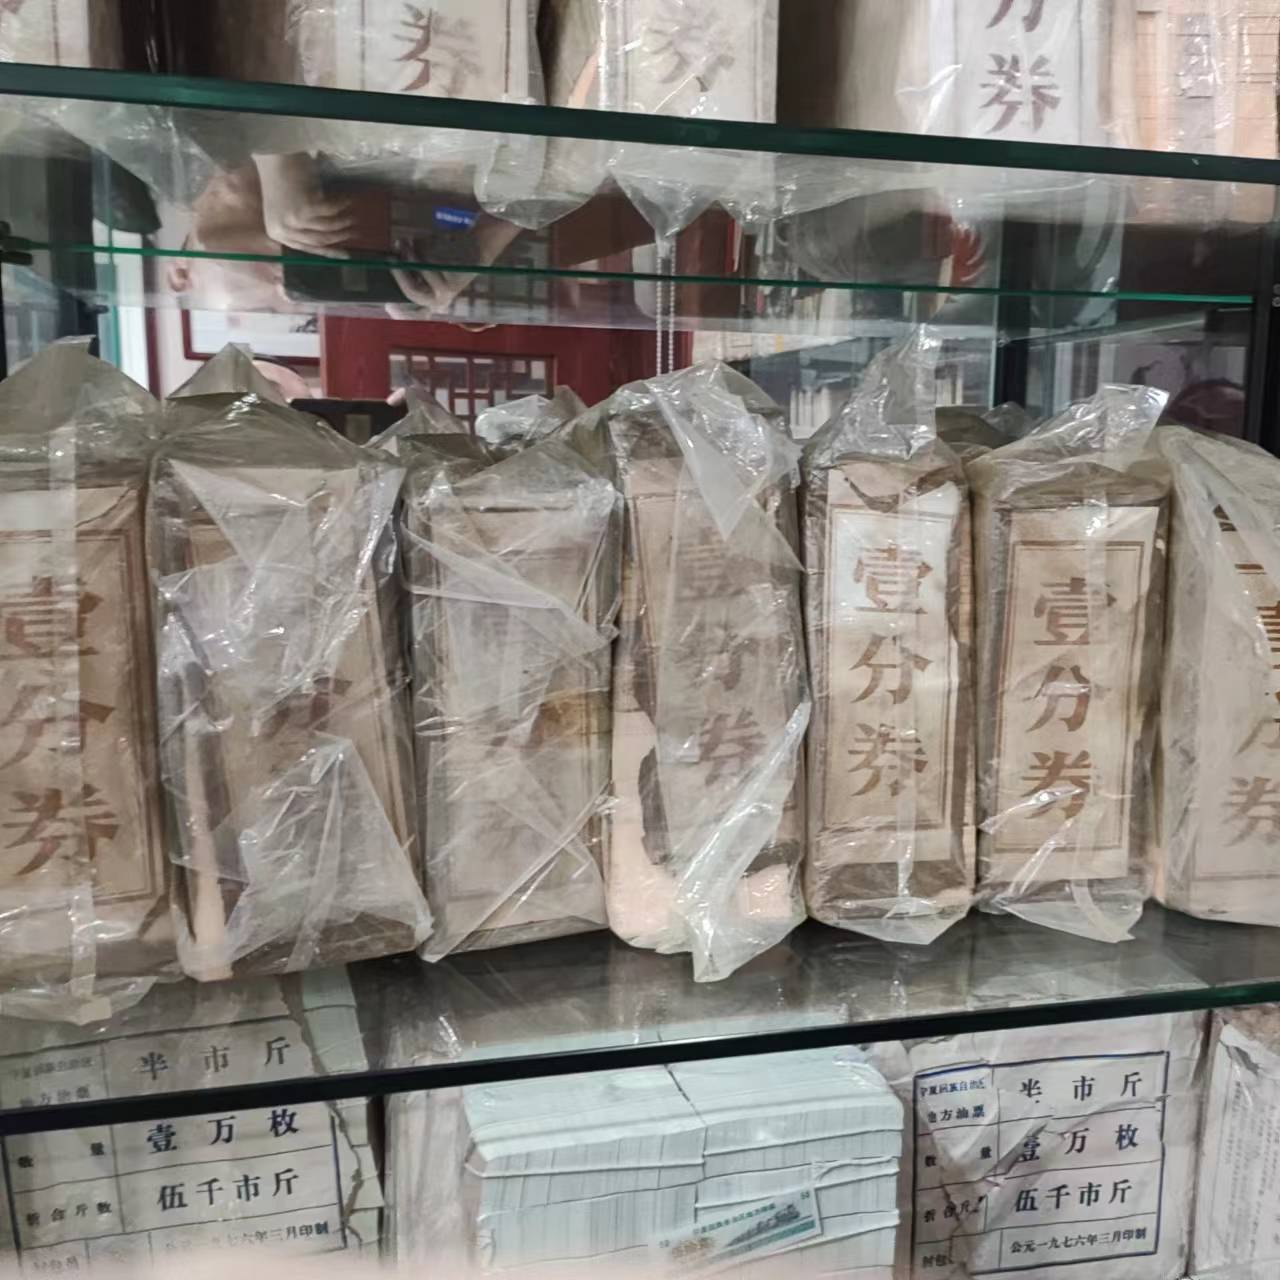 券
券
分
券
壹
分
券
分
壹
分
券
壹
分
券
壹
分
券
壹
分
券
半市斤
地方油票
数量
壹万枚
折合斤数
伍千市斤
公元一九七六年三月印制
封包员
宁夏回族自治区
半市斤
地方油票
数量
壹万枚
折合斤
伍千市斤
公元一九七六年三月印制
封包